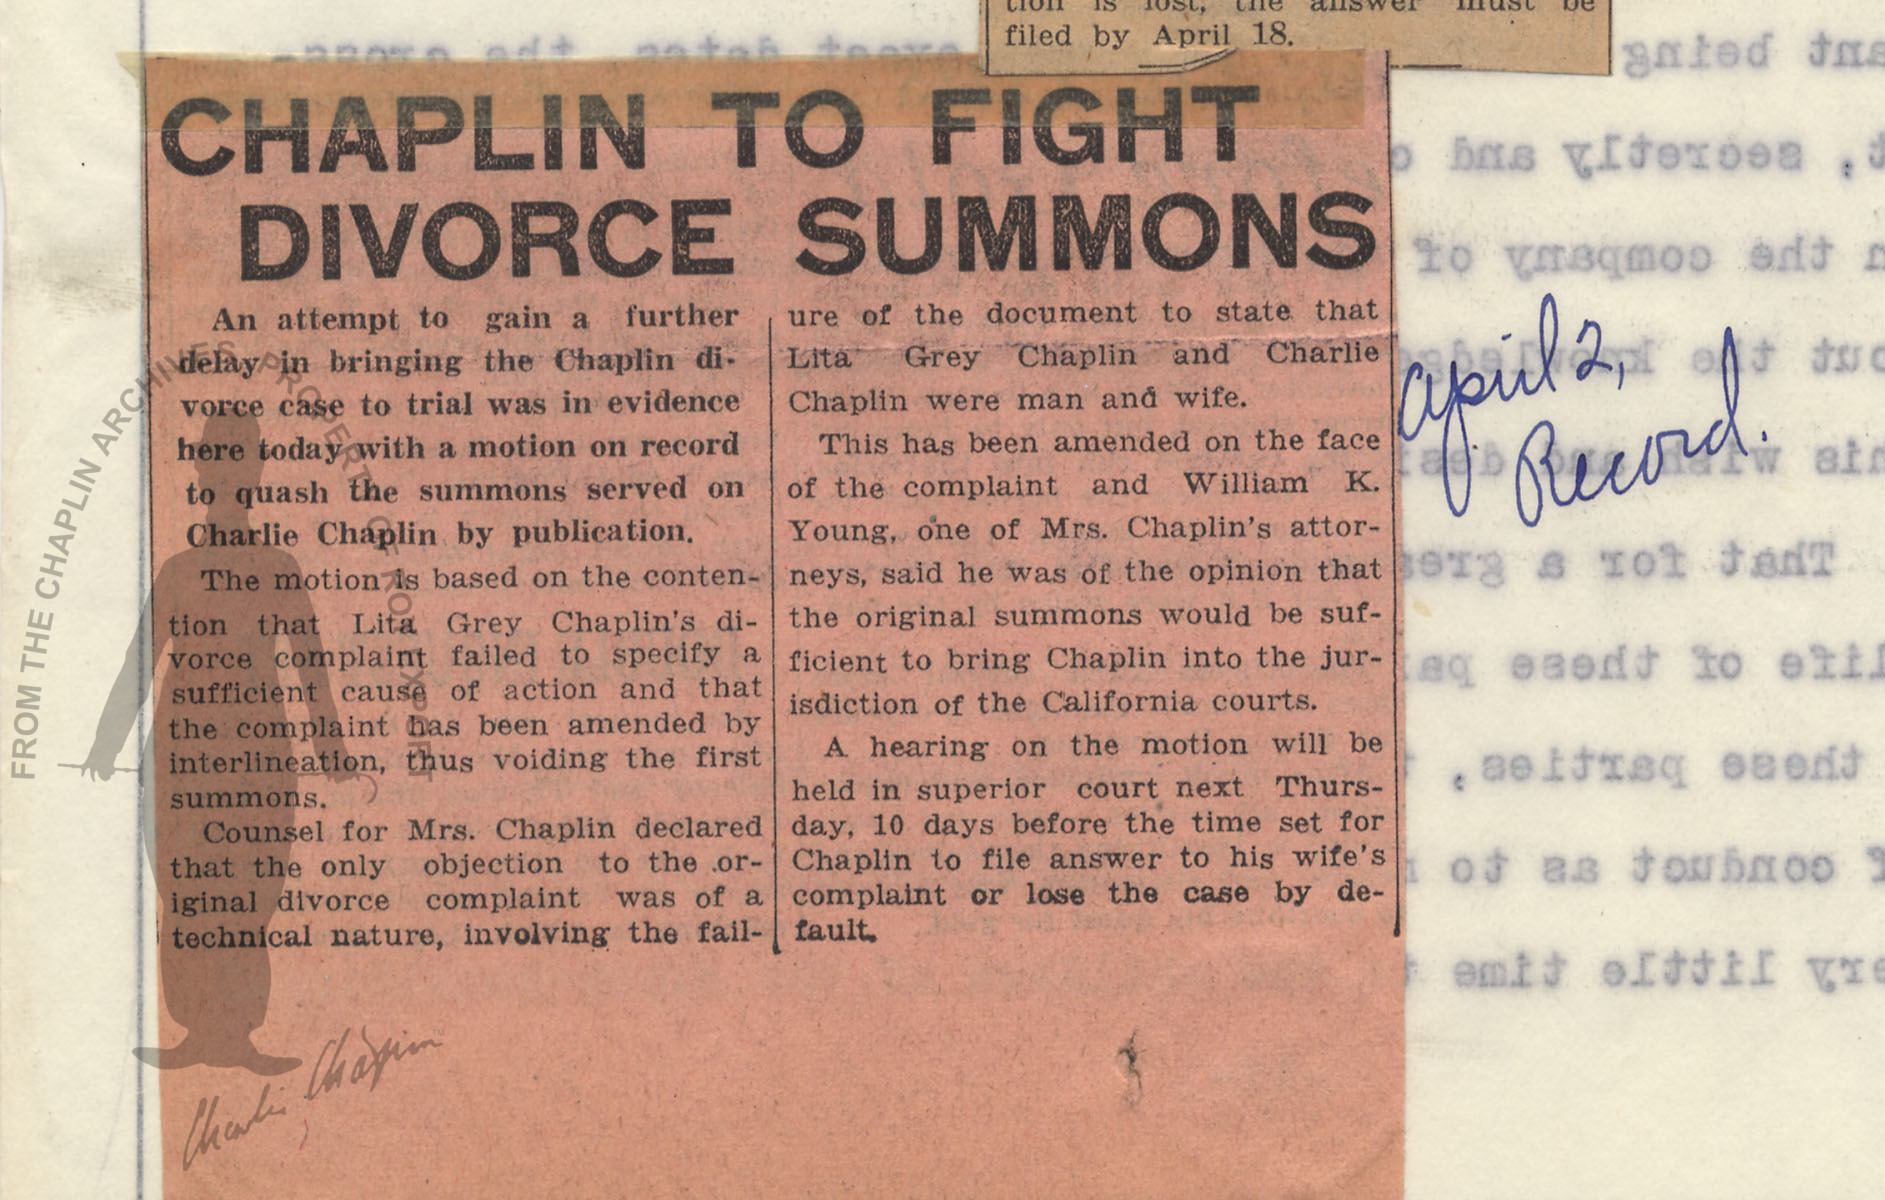 tion is lost, the answer must be
filed by April 18.
CHAPLIN TO FIGHT
DIVORCE SUMMONS
An attempt to gain a further
delay in bringing the Chaplin di-
vorce case to trial was in evidence
here today with a motion on record
to quash the summons served on
Charlie Chaplin by publication.
The motion is based on the conten-
tion that Lita Grey Chaplin's di-
vorce complaint failed to specify a
sufficient cause of action and that
the complaint has been amended by
interlineation, thus voiding the first
summons.
Counsel for Mrs. Chaplin declared
that the only objection to the or-
iginal divorce complaint was of a
technical nature, involving the fail-
ure of the document to state that
Lita Grey Chaplin and Charlie
Chaplin were man and wife.
This has been amended on the face
of the complaint and William K.
Young, one of Mrs. Chaplin's attor-
neys, said he was of the opinion that
the original summons would be suf-
ficient to bring Chaplin into the jur-
isdiction of the California courts.
A hearing on the motion will be
held in superior court next Thurs-
day, 10 days before the time set for
Chaplin to file answer to his wife's
complaint or lose the case by de-
fault.
April 2,
Record.
FROM THE CHAPLIN ARCHIVES PROPERTY OF ROY EXPORT
Charlie Chaplin